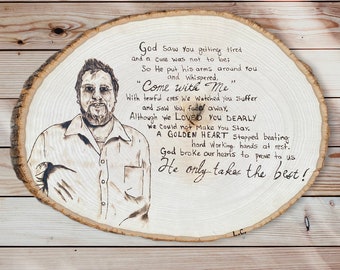 God Saw You getting tired
and a cure was not to be;
So He put his arms around you
and whispered,
"Come with Me"
With tearful eyes We Watched You Suffer
and saw You fade away.
Although we LOVED YOU DEARLY
We Could not Make You Stay.
A GOLDEN HEART stopped beating;
hard Working hands at rest.
God broke our hearts to prove to us
He only takes the best!
L.C.